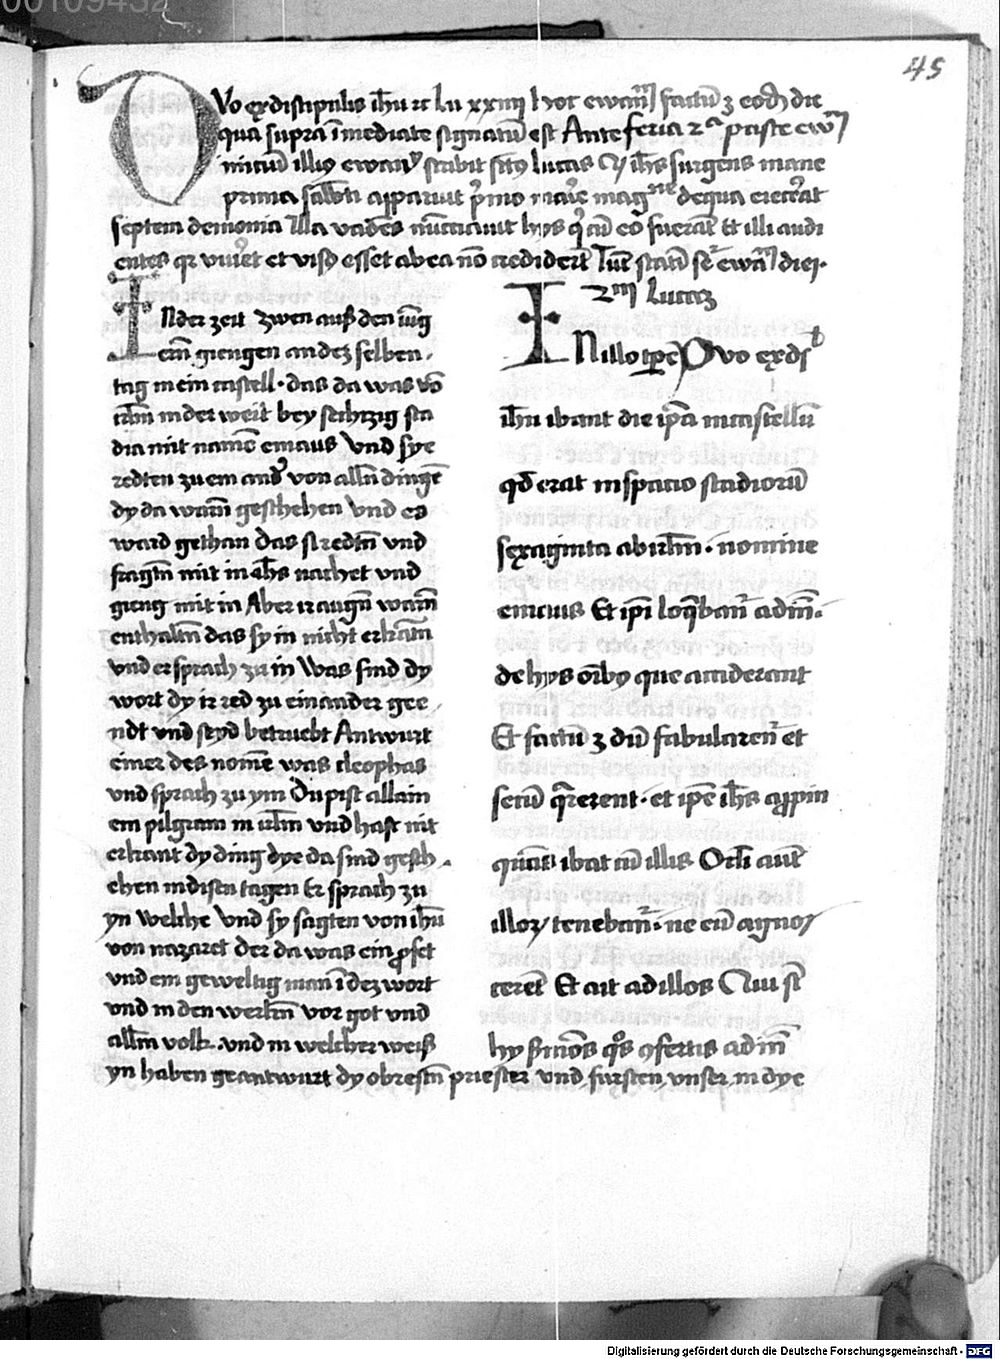 00109432
45
Duo ex discipulis ihu ⁊c Lu xxiiij hoc ewan factu ʒ eode die
qua supra imediate signatu est Ante feria 2ᵃ pasce ew
iniciu illius ewan scribit scus lucas Ihs surgens mane
prima sabbati apparuit pmo marie magne de qua eiecerat
septem demonia Illa vades nuncciauit hys q cu eo fuerat Et illi audi
entes qz viuet et visus esset ab ea no crediderut
In der zeit zwen auß den iug
ern giengen an dez selben
tag in ein castell · das da was vo
irlm in der weit bey sechtzig sta
dia mit name emaus Vnd sye
redten zu em and von alln dinge
dy da warn geschehen Vnd es
ward gethan das si redtn vnd
fragtn mit in ihs nachet vnd
gieng mit in Aber ir augn warn
enthaltn das sy in nicht erkatn
vnd er sprach zu in Was sind dy
wort dy ir red zu einander gee
ndt vnd seyd betruebt Antwurt
einer des nome was cleophas
vnd sprach zu ym Du pist allain
ein pilgram in irlm vnd hast nit
erkant dy ding dye da sind gesch
ehen in disen tagen Er sprach zu
yn welche Vnd sy sagten von ihu
von nazaret der da was ein pfet
vnd ein geweltig man i dez wort
vnd in den werkn vor got vnd
allm volk · vnd in welcher weiß
yn haben geantwurt dy obrestn priester vnd fursten vnser in dye
Lucas
In illo tpe Duo ex disⁱ
ihu ibant die ipa in castellu
qd erat in spacio stadioru
sexaginta ab irlm · nomine
emaus Et ipi loqbant adin
de hys oibus que acciderant
Et factu ʒ du fabularent et
secu qrerent · et ipe ihs appin
quans ibat cu illis Oculi aut
illoꝝ tenebant · ne eu agnos
ceret Et ait ad illos Qui st
hy smos qos ꝯfertis ad in
Digitalisierung gefördert durch die Deutsche Forschungsgemeinschaft - DFG